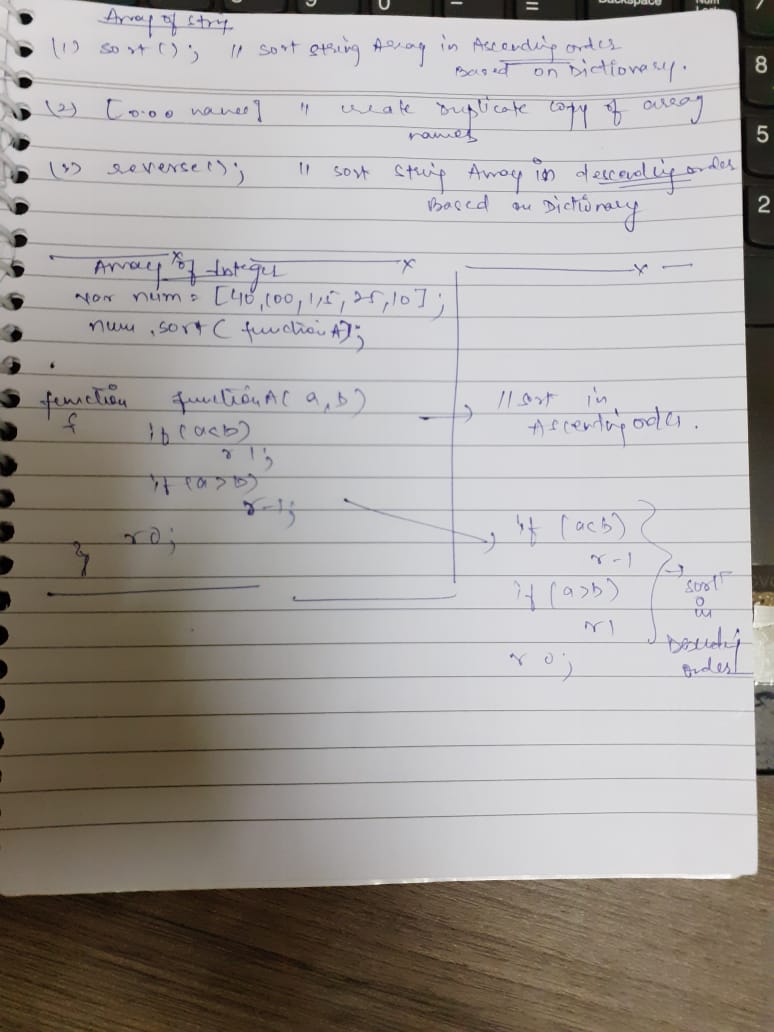 Array of Strg
(1) sort(); // sort string Array in Ascending order
Based on Dictionary.
(2) [... names] // create Duplicate Copy of array
names
(3) reverse(); // sort String Array in descending order
Based on Dictionary
x x x
Array of Integer
var num = [40,100,1,5,25,10];
num.sort( functionA);
function functionA( a,b)
{ if (a<b)
r 1;
if (a>b)
r -1;
r 0;
}
// sort in
Ascending order.
if (a<b)
r -1
if (a>b)
r 1
r 0;
sort
in
Descending
order
Backspace
Num
8
5
2